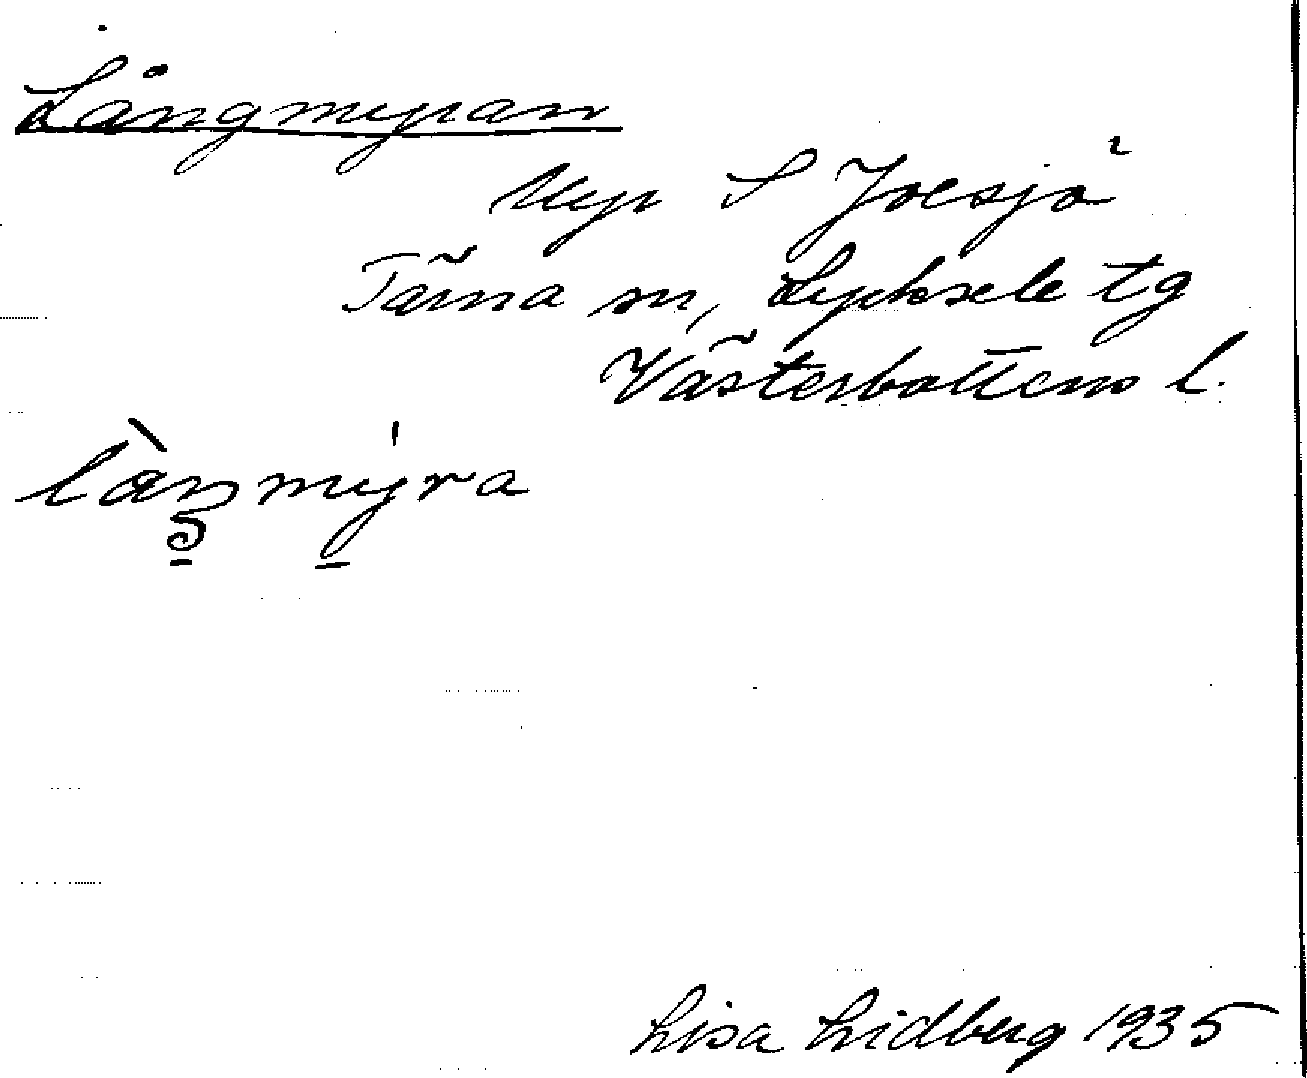 Långmyran
Myr S Joesjö
Tärna sn, Lycksele tg
Västerbottens l.
låŋmyra
Lisa Lidberg 1935